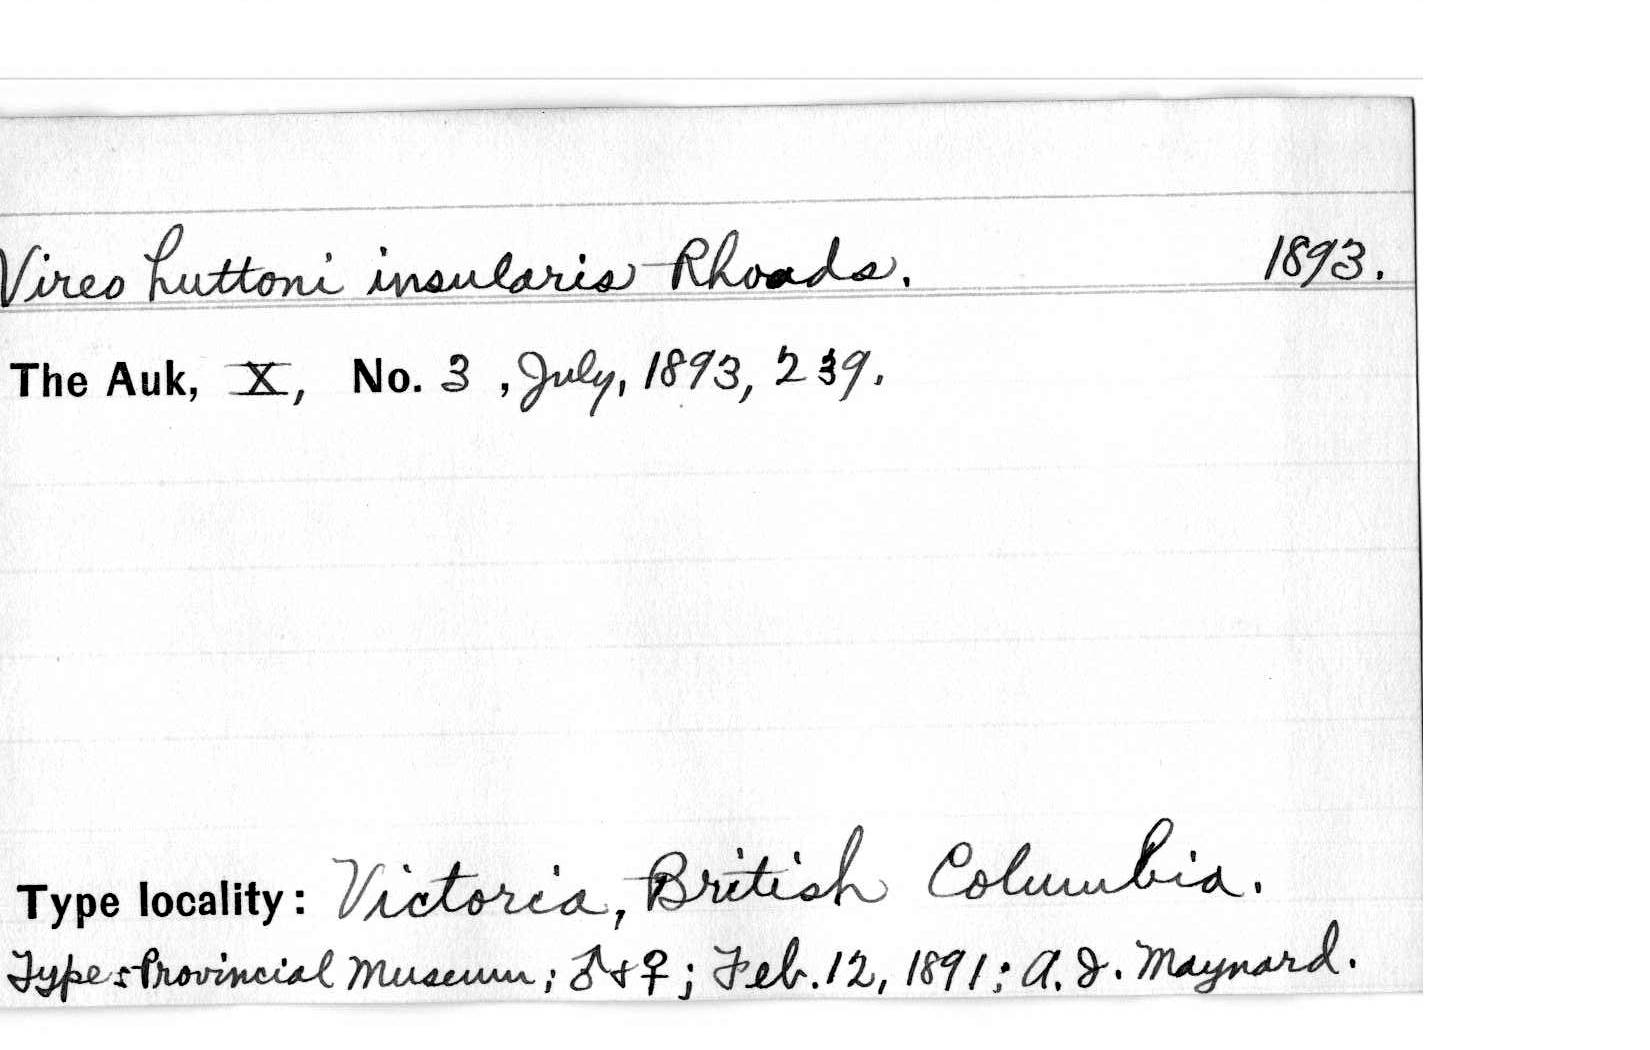 Vireo huttoni insularis Rhoads. 1893.
The Auk, X, No. 3, July, 1893, 239.
Type locality: Victoria, British Columbia.
Types Provincial Museum; ♂ & ♀; Feb. 12, 1891; A. J. Maynard.